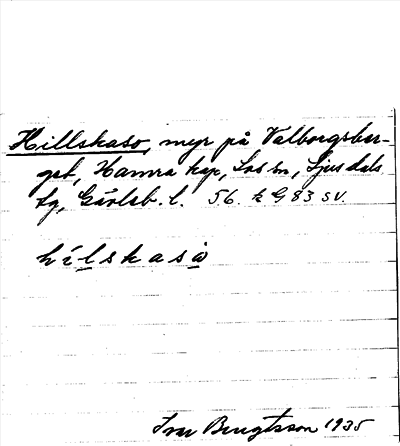 Hillskaso, myr på Valborgsber-
get, Hamra kap, Los sn, Ljusdals
tg, Gävleb. l. 56. k G 83 SV.
hílskaså
Ivar Bengtsson 1935